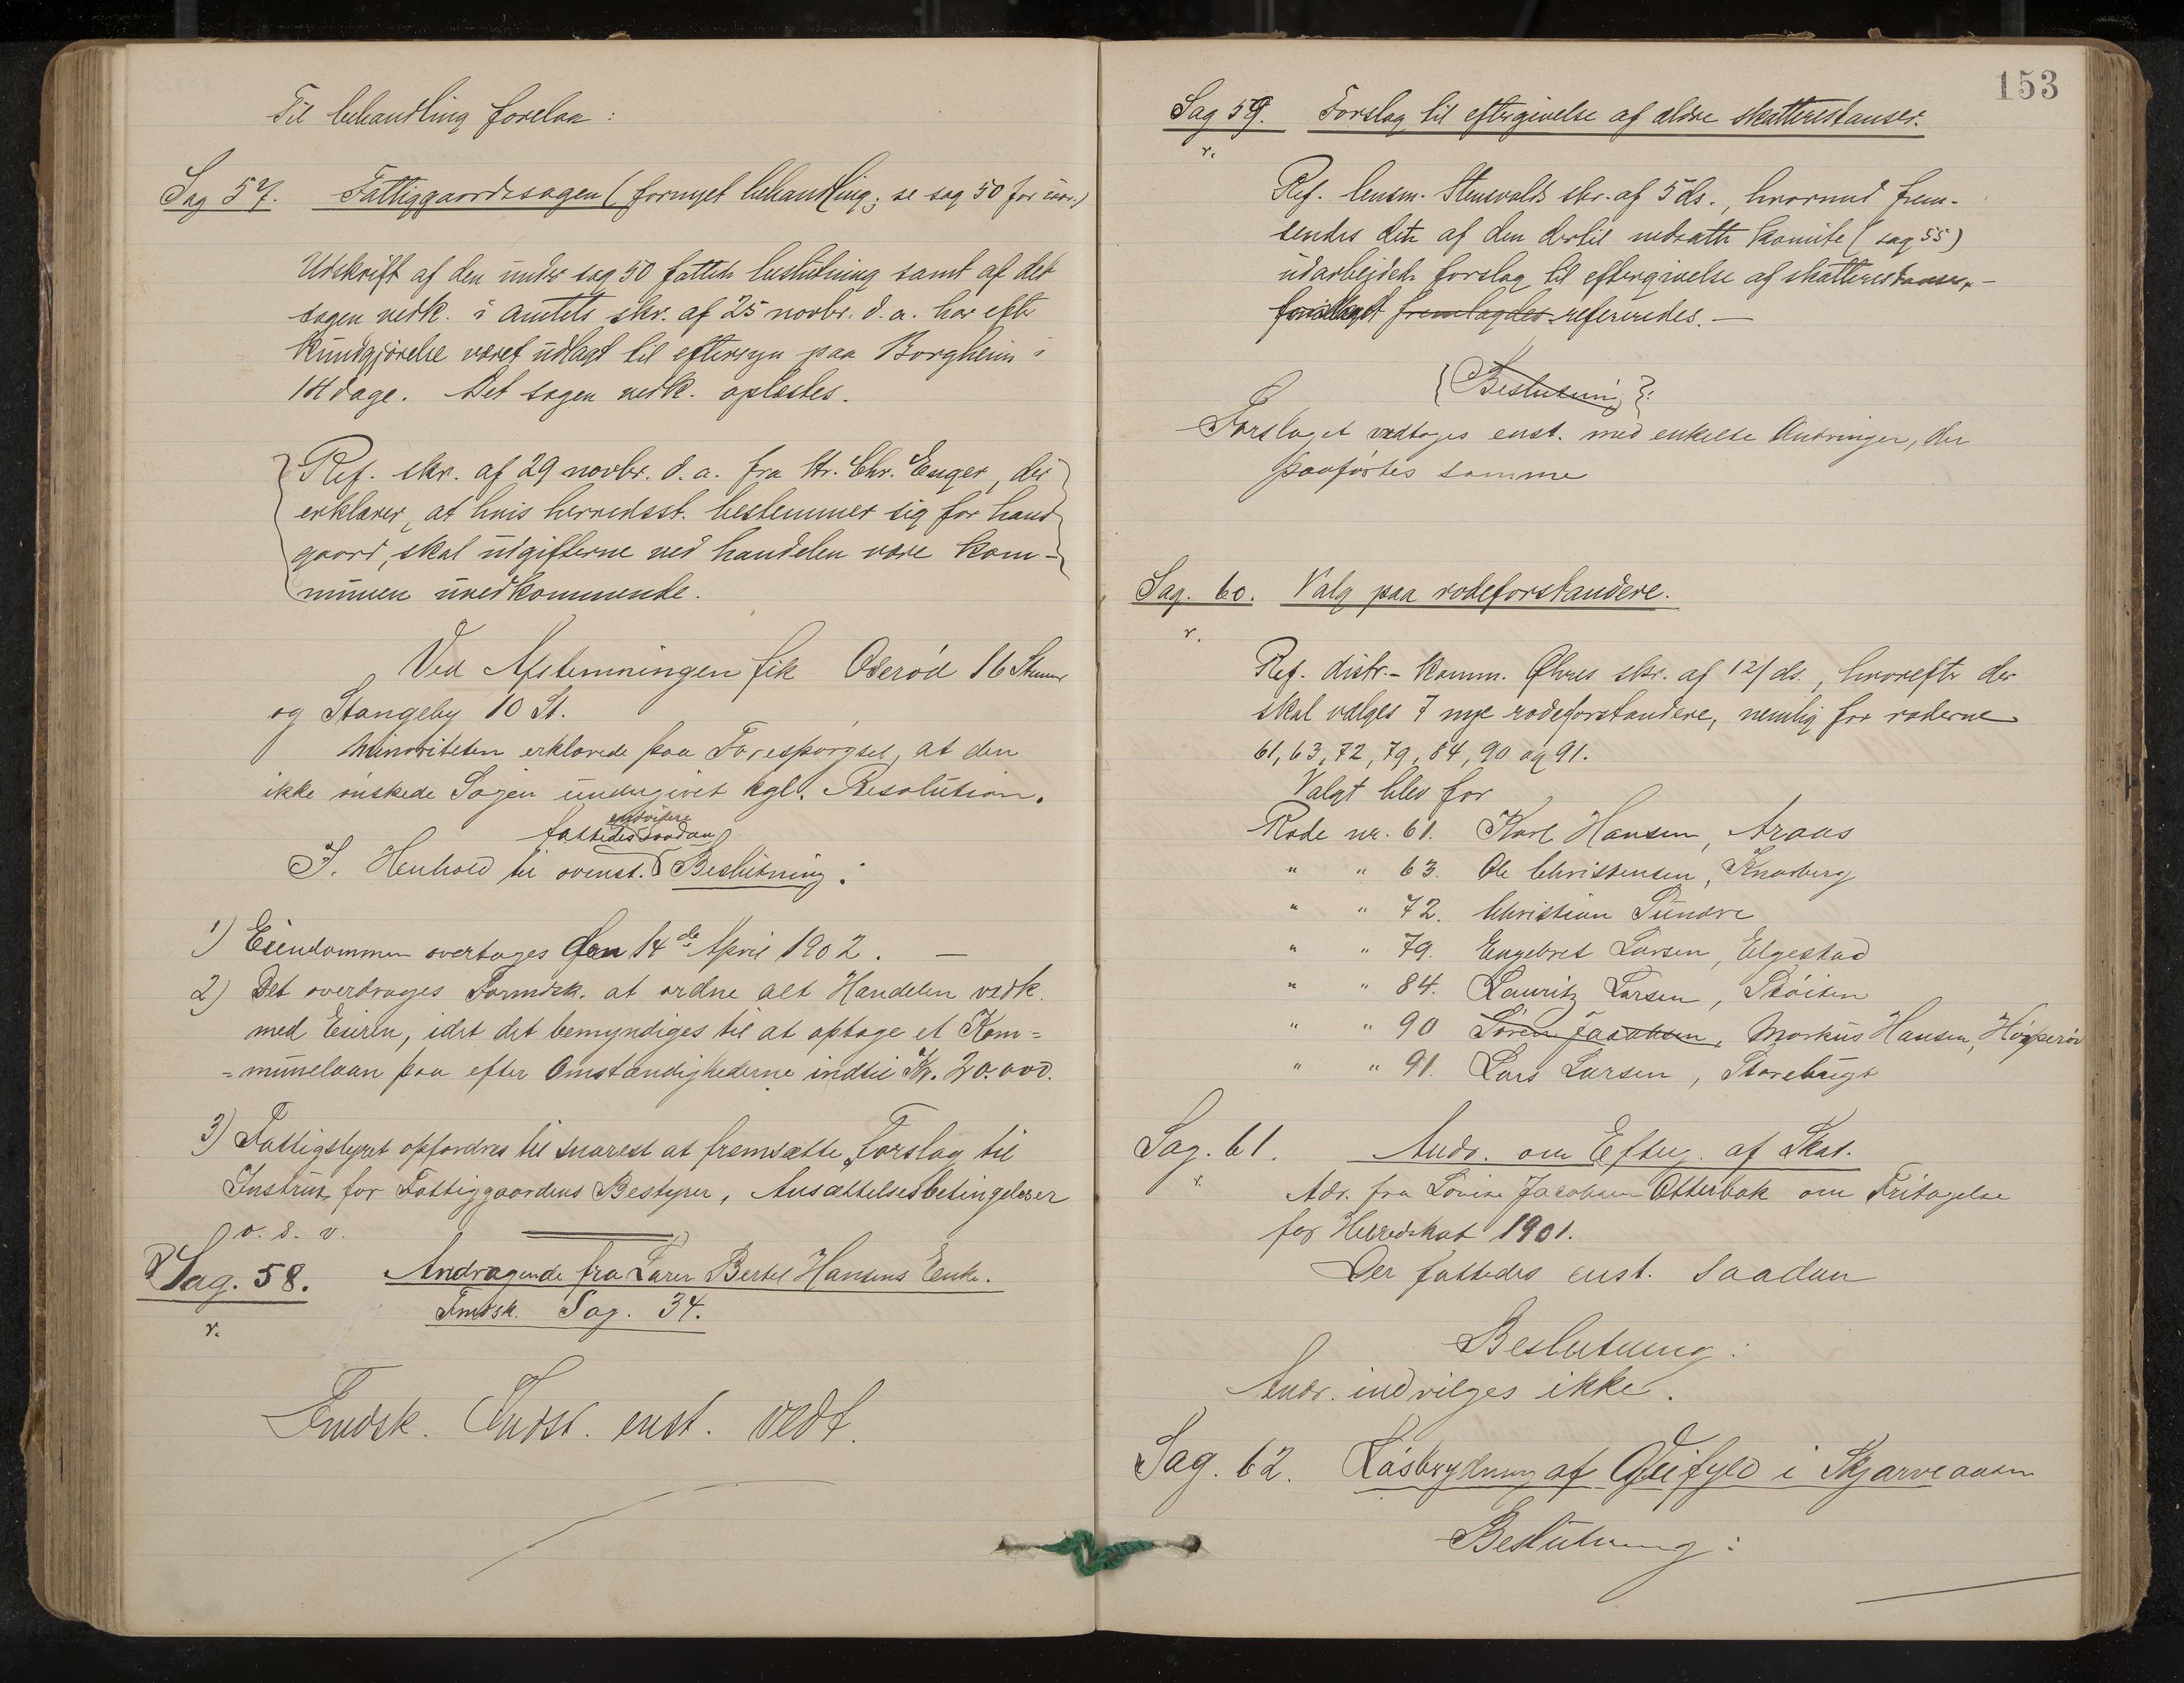 Til behandling forelaa:
Sag 57. Fattiggaardssagen (fornyet behandling; se sag 50 for iaar.)
Udskrift af den under sag 50 fattede beslutning samt af det
sagen vedk. i amtets skr. af 25 novbr. d. a. har efter
kundgjørelse været udlagt til eftersyn paa Borgheim i
14 dage. Det sagen vedk. oplæstes.
Ref. skr. af 29 novbr. d. a. fra Hr. Chr. Enger, der
erklærer, at hvis herredsst. bestemmer sig for hans
gaard, skal udgifterne ved handelen være kom-
munen uvedkommende.
Ved Afstemningen fik Oserød 16 Stemmer
og Stangeby 10 St.
Minoriteten erklærede paa Forespørgsel, at den
ikke ønskede Sagen undergivet kgl. Resolution.
endvidere
fattedes saadan
I. Henhold til ovenst. Beslutning:
1) Eiendommen overtages den 14de April 1902. —
2) Det overdrages Formdsk. at ordne alt Handelen vedk.
med Eieren, idet det bemyndiges til at optage et Kom=
=munelaan paa efter Omstændighederne indtil Kr. 20.000.
3) Fattigstyret opfordres til snarest at fremsætte Forslag til
Instrux for Fattiggaardens Bestyrer, Ansættelsesbetingelser
o. s. v.
Sag. 58. Andragende fra Lærer Bertel Hansens Enke.
r. Fmdsk. Sag. 34.
Fmdsk. Indst. enst. vedt.
153
Sag 59. Forslag til eftergivelse af ældre skatterestanser.
r.
Ref. lensm. Stensvalds skr. af 5 ds., hvormed frem-
sendes det af den dertil nedsatte komite (sag 55)
udarbejdede forslag til eftergivelse af skatterestanser, —
forslaget fremlagdes refereredes. —
{Beslutning}:
Forslaget vedtages enst. med enkelte Ændringer, der
paaførtes samme
Sag. 60. Valg paa rodeforstandere.
r.
Ref. distr.-komm. Øhres skr. af 12/ ds., hvorefter der
skal vælges 7 nye rodeforstandere, nemlig for roderne
61, 63, 72, 79, 84, 90 og 91.
Valgt blev for
Rode nr. 61. Karl Hansen, Araas
" " 63. Ole Christensen, Knarberg
" " 72. Christian Sundre
" " 79. Engebret Larsen, Elgestad
" " 84. Lauritz Larsen,
" " 90 Søren Jacobsen, Markus Hansen,
" " 91. Lars Larsen,
Sag. 61. Andr. om Efterg. af Skat.
r. Adr. fra Lovise Jacobsen Otterbæk om Fritagelse
for Herredskat 1901.
Der fattedes enst. saadan
Beslutning:
Andr. indvilges ikke.
Sag. 62. Løsbrydning af Veifyld i Skjærveaasen
Beslutning: